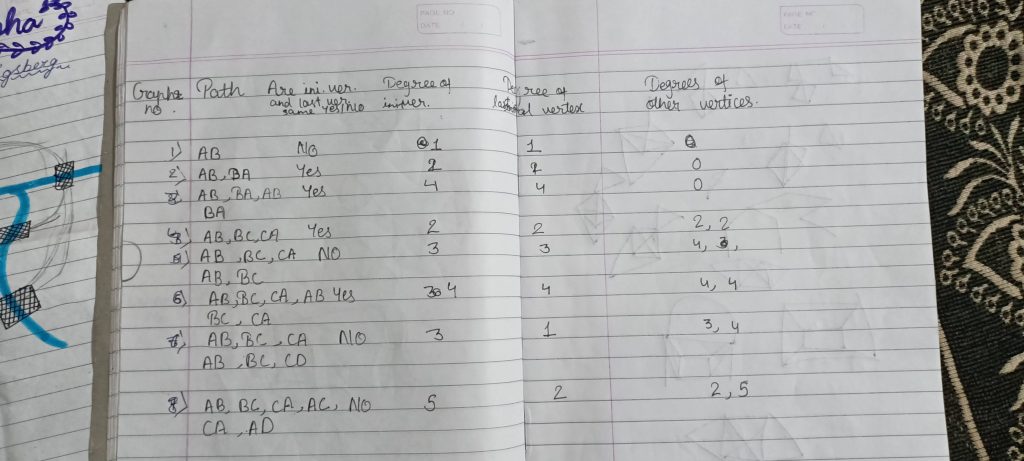 PAGE NO
DATE
PAGE NO
DATE
Graph no. Path Are ini. ver. and last ver. same Yes/No Degree of ini. ver. Degree of last vertex Degrees of other vertices.
1) AB NO 1 1 0
2) AB, BA Yes 2 2 0
3) AB, BA, AB Yes 4 4 0
BA
4) AB, BC, CA Yes 2 2 2, 2
5) AB, BC, CA NO 3 3 4,
AB, BC
6) AB, BC, CA, AB Yes 4 4 4, 4
BC, CA
7) AB, BC, CA NO 3 1 3, 4
AB, BC, CD
8) AB, BC, CA, AC, NO 5 2 2, 5
CA, AD